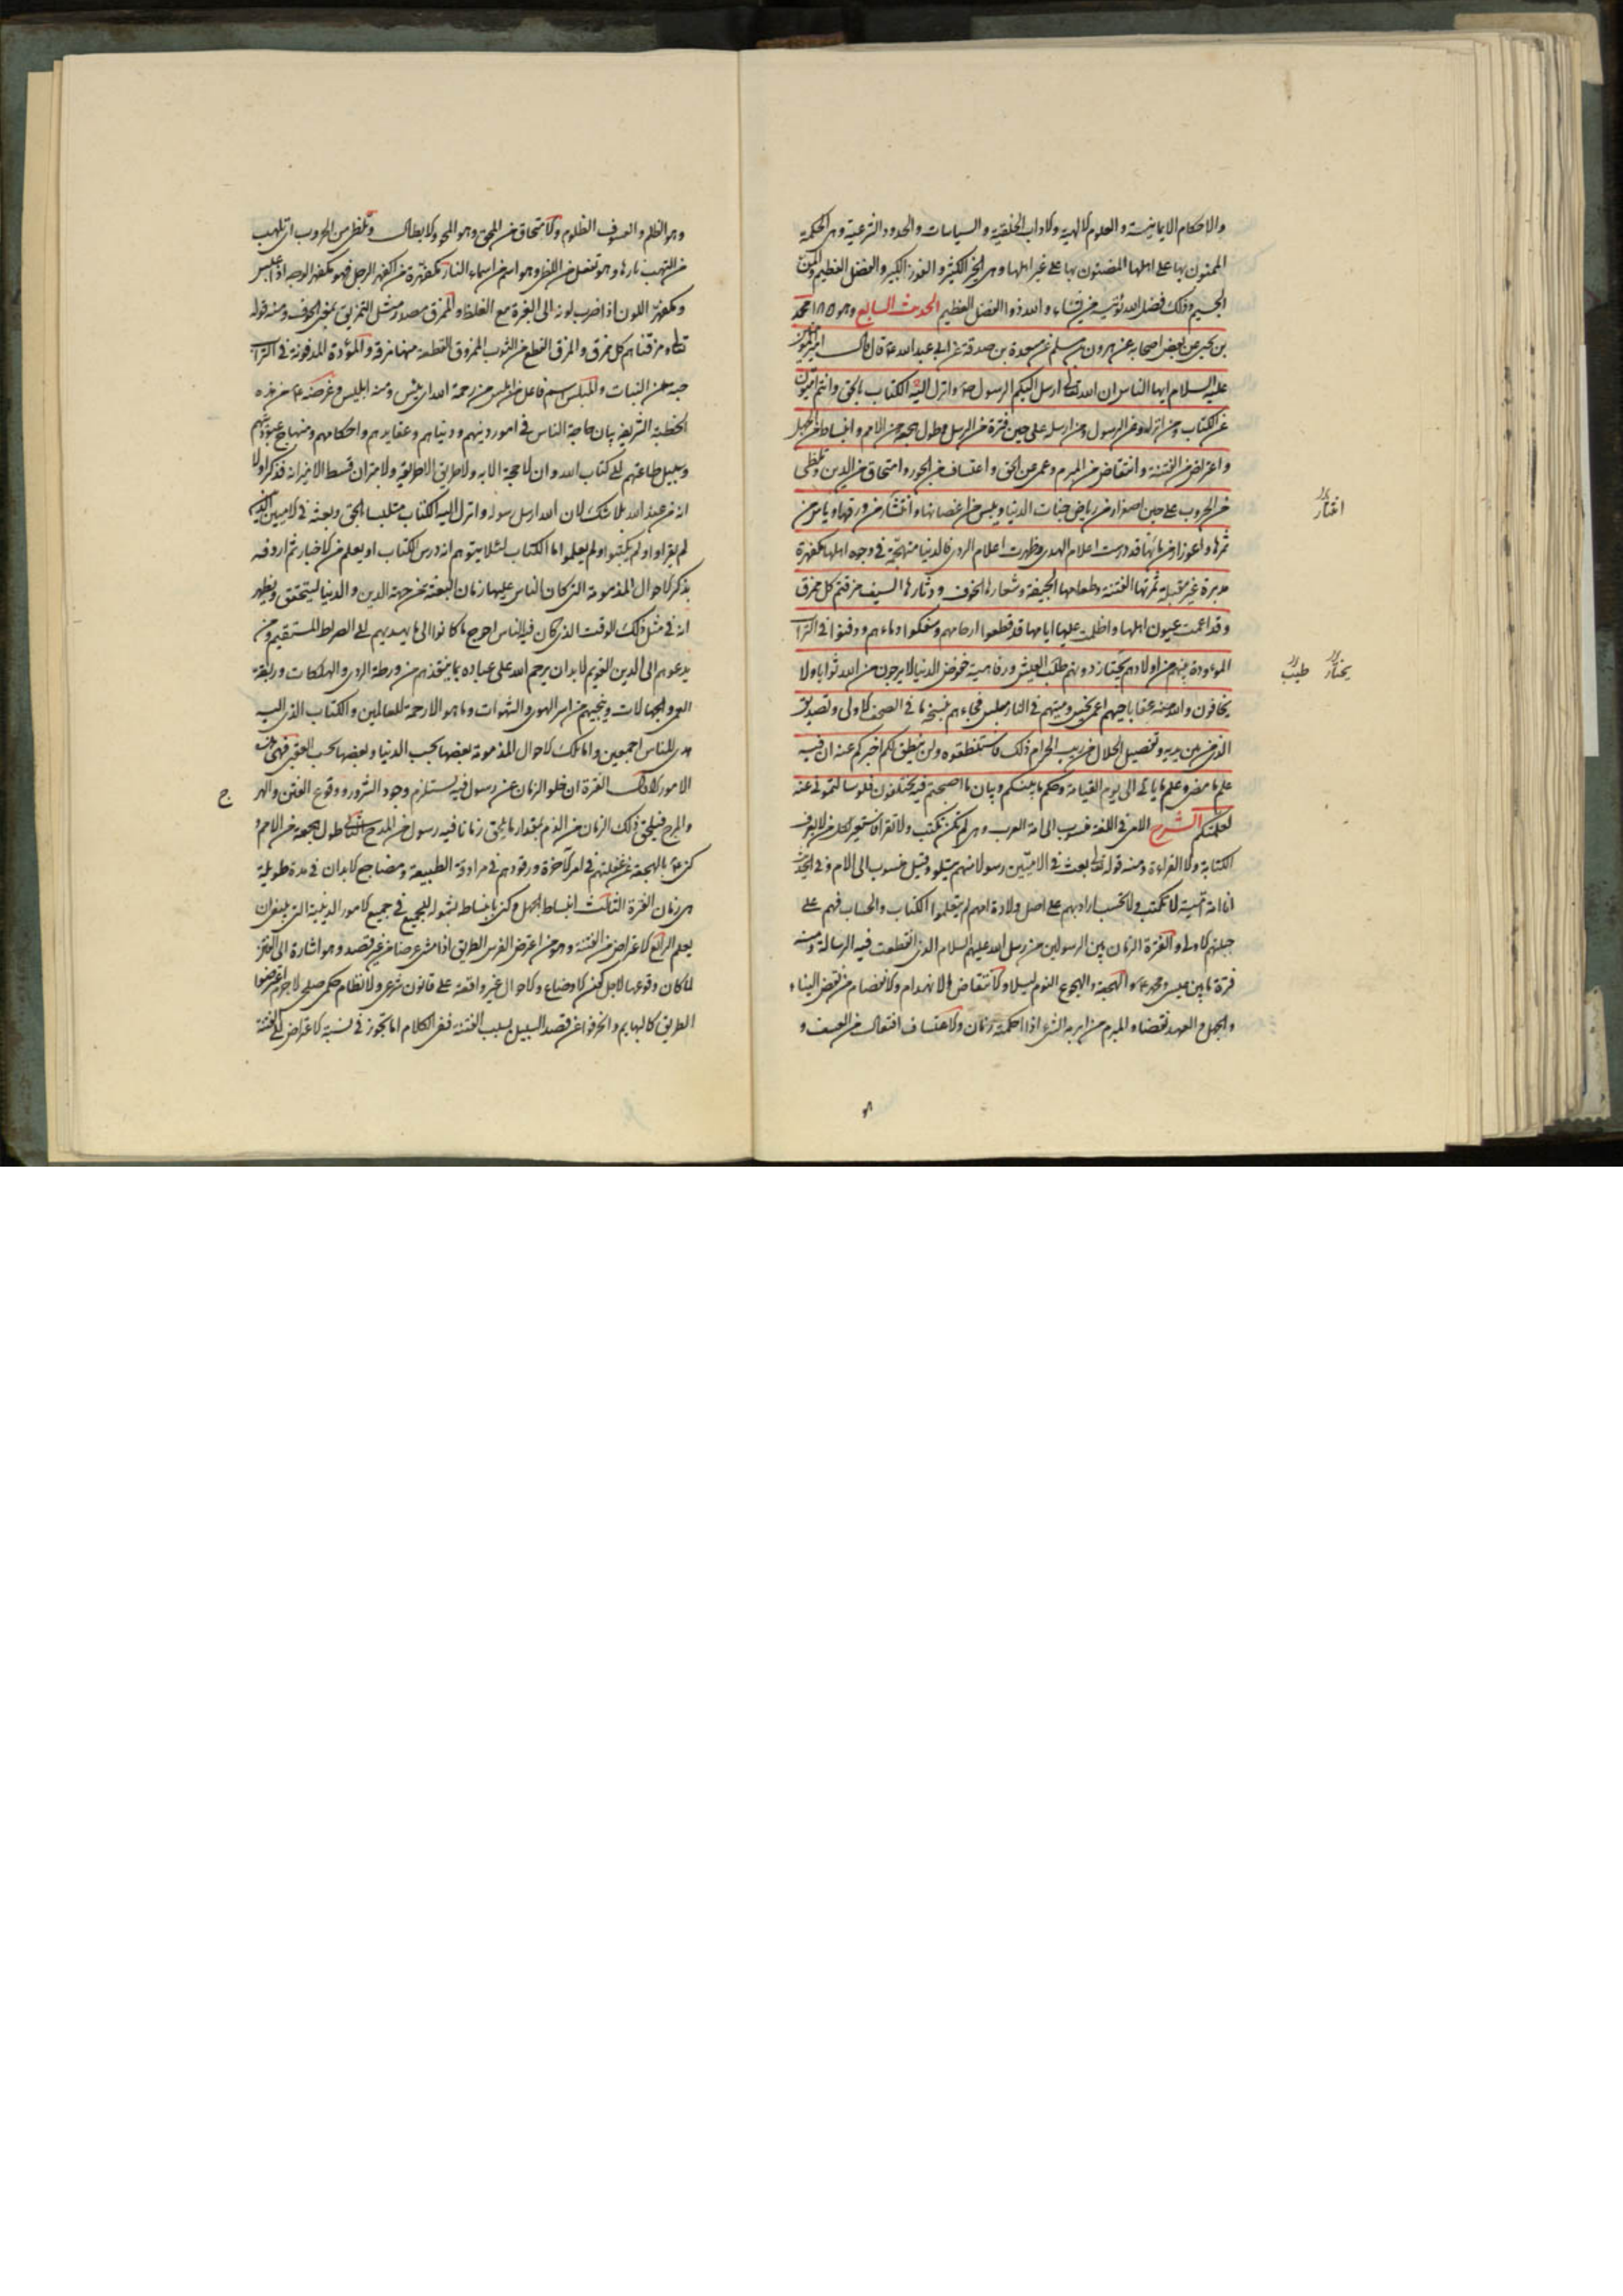 والاحكام الايمانية والعلوم الالهية والاداب الخلقية والسياسات والحدود الشرعية وهى الحكمة
الممنون بها على اهلها المضنون بها على غير اهلها وهى الخير الكثير والفوز الكبير والفضل العظيم والمن
الجسيم وذلك فضل الله يؤتيه من يشاء والله ذو الفضل العظيم الحديث السابع وهو ١٨٥ محمد
بن يحيى عن بعض اصحابه عن هرون بن مسلم عن مسعدة بن صدقة عن ابى عبد الله ع قال قال امير المؤمنين
عليه السلام ايها الناس ان الله تعالى ارسل اليكم الرسول ص وانزل اليه الكتاب بالحق وانتم اميون
عن الكتاب ومن انزله وعن الرسول ومن ارسله على حين فترة من الرسل وطول هجعة من الامم وانبساط من الجهل
واعتراض من الفتنة وانتقاض من المبرم وعمى عن الحق واعتساف من الجور وامتحاق من الدين وتلظى
من الحروب على حين اصفرار من رياض جنات الدنيا ويبس من اغصانها وانتشار من ورقها وياس من
ثمرها واغورار من مائها قد درست اعلام الهدى وظهرت اعلام الردى فالدنيا متهجمة فى وجوه اهلها مكفهرة
مدبرة غير مقبلة ثمرتها الفتنة وطعامها الجيفة وشعارها الخوف ودثارها السيف مزقتم كل ممزق
وقد اعمت عيون اهلها واظلمت عليها ايامها قد قطعوا ارحامهم وسفكوا دماءهم ودفنوا فى التراب
الموءودة بينهم من اولادهم يجتاز دونهم طلب العيش ورفاهية خفوض الدنيا لا يرجون من الله ثوابا ولا
يخافون والله منه عقابا حيهم اعمى نجس وميتهم فى النار مبلس فجاءهم بنسخة ما فى الصحف الاولى وتصديق
الذى بين يديه وتفصيل الحلال من ريب الحرام ذلك فاستنطقوه ولن ينطق لكم اخبركم عنه ان فيه
علم ما مضى وعلم ما ياتى الى يوم القيامة وحكم ما بينكم وبيان ما اصبحتم فيه تختلفون فلو سالتمونى عنه
لعلمتكم الشرح الامى فى اللغة منسوب الى امة العرب وهى لم تكن تكتب ولا تقرا فاستعير لكل من لا يعرف
الكتابة ولا القراءة ومنه قوله تعالى بعث فى الاميين رسولا منهم يتلو وقيل منسوب الى الام وفى الحديث
انا امة امية لا نكتب ولا نحسب اراد بهم على اصل ولادة امهم لم يتعلموا الكتاب والحساب فهم على
جبلتهم الاولى والفترة الزمان بين الرسولين من رسل الله عليهم السلام الذى انقطعت فيه الرسالة ومنه
فترة ما بين عيسى ومحمد ع والهجعة والهجوع النوم ليلا والانتقاض الانهدام والانفصام من نقض البناء
والحبل والعهد نقضا والمبرم من ابرم الشئ اذا احكمه والاعتساف افتعال من العسف و
اغتار
يختار طيب
وهو الظلم والعسوف الظلوم والامتحاق من المحق وهو المحو والابطال وتلظى من الحروب اى تلهب
من التهب نارها وهو تفعل من اللظى وهو اسم من اسماء النار مكفهرة من اكفهر الرجل فهو مكفهر الوجه اذا عبس
ومكفهر اللون اذا ضرب لونه الى الغبرة مع الغلظ والممزق مصدر مثل التمزيق بمعنى الخرق ومنه قوله
تعالى ومزقناهم كل ممزق والمزق القطع من الثوب الممزوق القطعة منها مزقة والموءودة المدفونة فى التراب
حية من البنات والمبلس اسم فاعل من ابلس من رحمة الله اى يئس ومنه ابليس وغرضه ع من هذه
الخطبة الشريفة بيان حاجة الناس فى امور دينهم ودنياهم وعقايدهم واحكامهم ومنهاج عبوديتهم
وسبيل طاعتهم الى كتاب الله وان لا حجة الا به ولا طريق الا طريقه ولا ميزان قسط الا ميزانه فذكر اولا
انه من عند الله بلا شك لان الله ارسل رسوله وانزل اليه الكتاب متلبسا بالحق وبعثه فى الاميين الذين
لم يقراوا ولم يكتبوا ولم يعلموا ما الكتاب لئلا يتوهم انه درس الكتاب او يعلم من الاخبار ثم اردفه
بذكر الاحوال المذمومة التى كان الناس عليها زمان البعثة من جهة الدين والدنيا ليتحقق ويظهر
انه فى مثل ذلك الوقت الذى كان فيه الناس احوج ما كانوا الى ما يهديهم الى الصراط المستقيم ومن
يدعوهم الى الدين القويم لا بد ان يرحم الله على عباده بما ينقذهم من ورطة الردى والهلكات وربقة
العمى والجهالات وينجيهم من اسر الهوى والشهوات وما هو الا رحمة للعالمين والكتاب الذى اليه
هدى للناس اجمعين واما تلك الاحوال المذمومة بعضها بحسب الدنيا وبعضها بحسب العقبى فهى من
الامور الاول الفترة ان خلو الزمان عن رسول فيه يستلزم وجود الشرور ووقوع الفتن والهر
ج
والمرج فيلحق ذلك الزمان من الذم بمقدار ما يلحق زمانا فيه رسول من المدح الثانى طول هجعة من الامم و
كنى ع بالهجعة عن غفلتهم فى امر الاخرة ورقودهم فى مراقد الطبيعة ومضاجع الابدان فى مدة طويلة
هى زمان الفترة الثالث انبساط الجهل وكنى بانبساط لشموله للجميع فى جميع الامور الدينية التى ينبغى ان
يعلم الرابع الاعتراض من الفتنة وهو من اعترض الفرس الطريق اذا مشى عرضا من غير قصد وهو اشارة الى الفتن
لما كان وقوعها لاجل كون الاوضاع والاحوال غير واقعة على قانون شرعى ولا نظام حكمى صلحى لا جرم اعترضوا
الطريق كالبهايم وانحرفوا عن قصد السبيل بسبب الفتنة ففى الكلام اما تجوز فى نسبة الاعتراض الى الفتنة